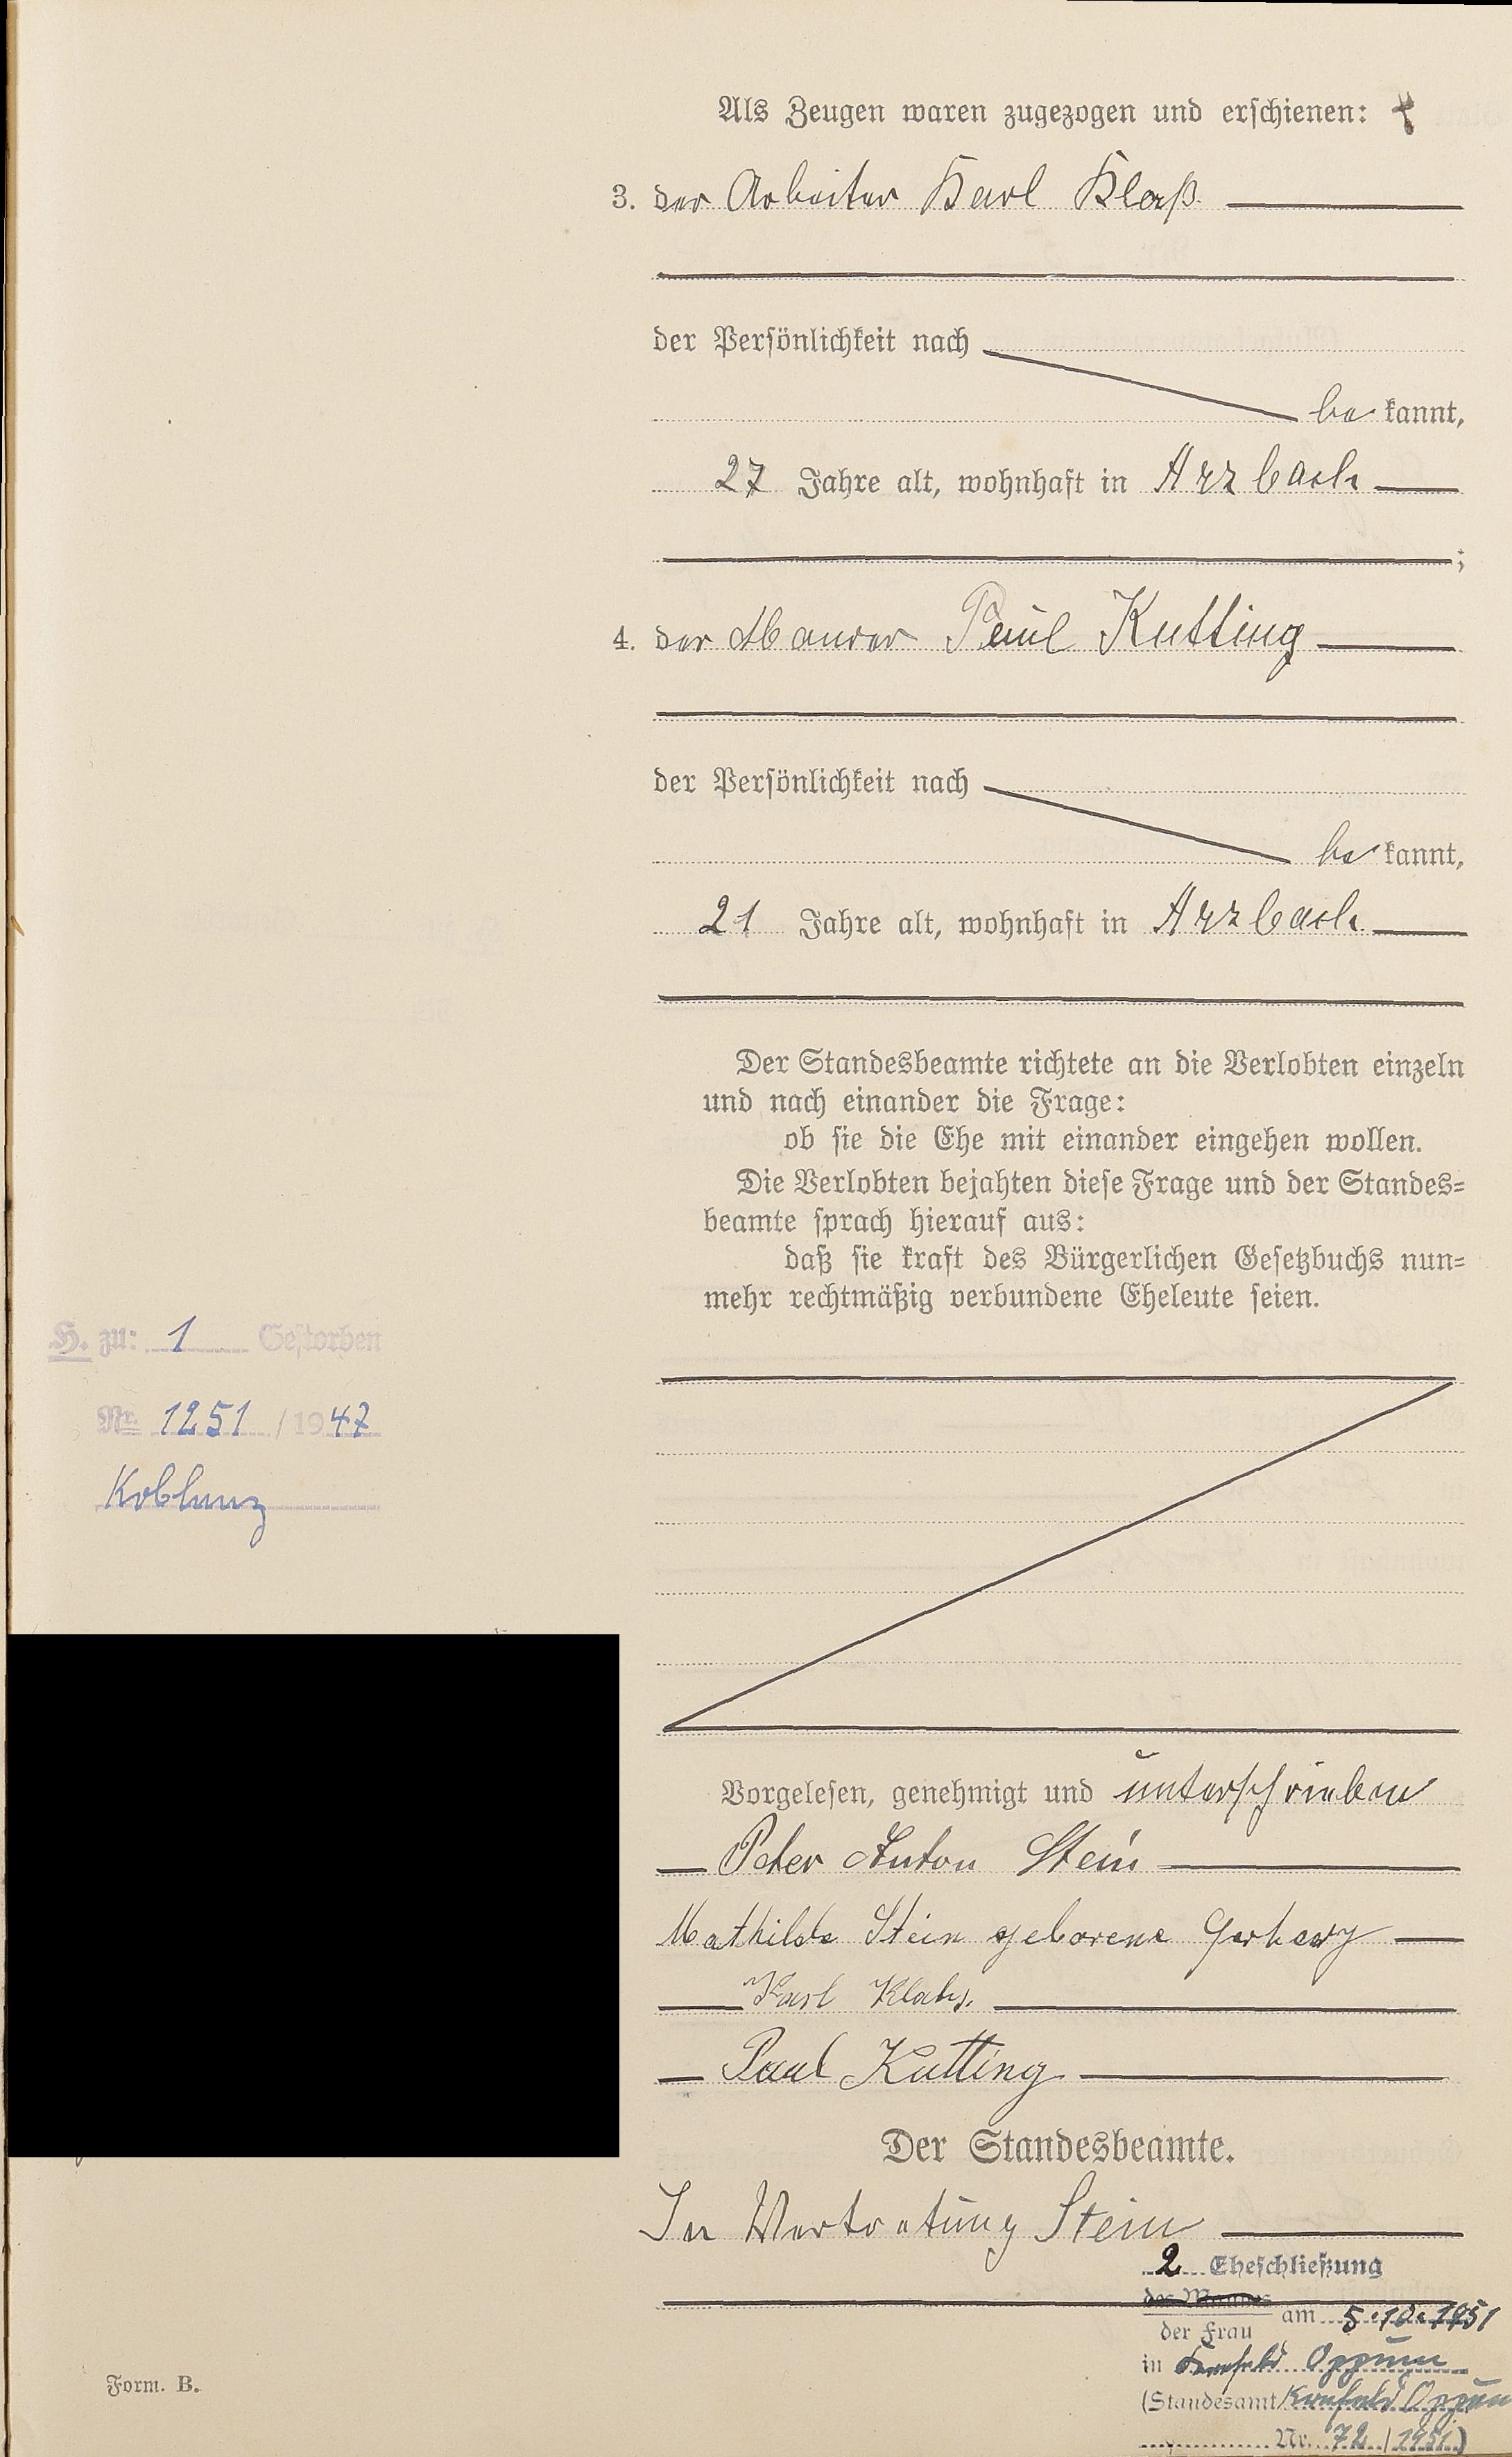 Als Zeugen waren zugezogen und erschienen:
3. der Arbeiter Karl Klaß
der Persönlichkeit nach
be kannt,
27 Jahre alt, wohnhaft in Arzbach
;
4. der Maurer Paul Kutting
der Persönlichkeit nach
be kannt,
21 Jahre alt, wohnhaft in Arzbach
Der Standesbeamte richtete an die Verlobten einzeln
und nach einander die Frage:
ob sie die Ehe mit einander eingehen wollen.
Die Verlobten bejahten diese Frage und der Standes=
beamte sprach hierauf aus:
daß sie kraft des Bürgerlichen Gesetzbuchs nun=
mehr rechtmäßig verbundene Eheleute seien.
H. zu: 1 Gestorben
Nr. 1251 / 1947
Koblenz
Vorgelesen, genehmigt und unterschrieben
Peter Anton Stein
Mathilde Stein geborene
Karl
Paul Kutting
Der Standesbeamte.
In Vertretung Stein
2 Eheschließung
des Mannes
der Frau am 5.10.1951
in Krefeld Oppum
(Standesamt Krefeld Oppum
Nr. 72 / 1951)
Form. B.